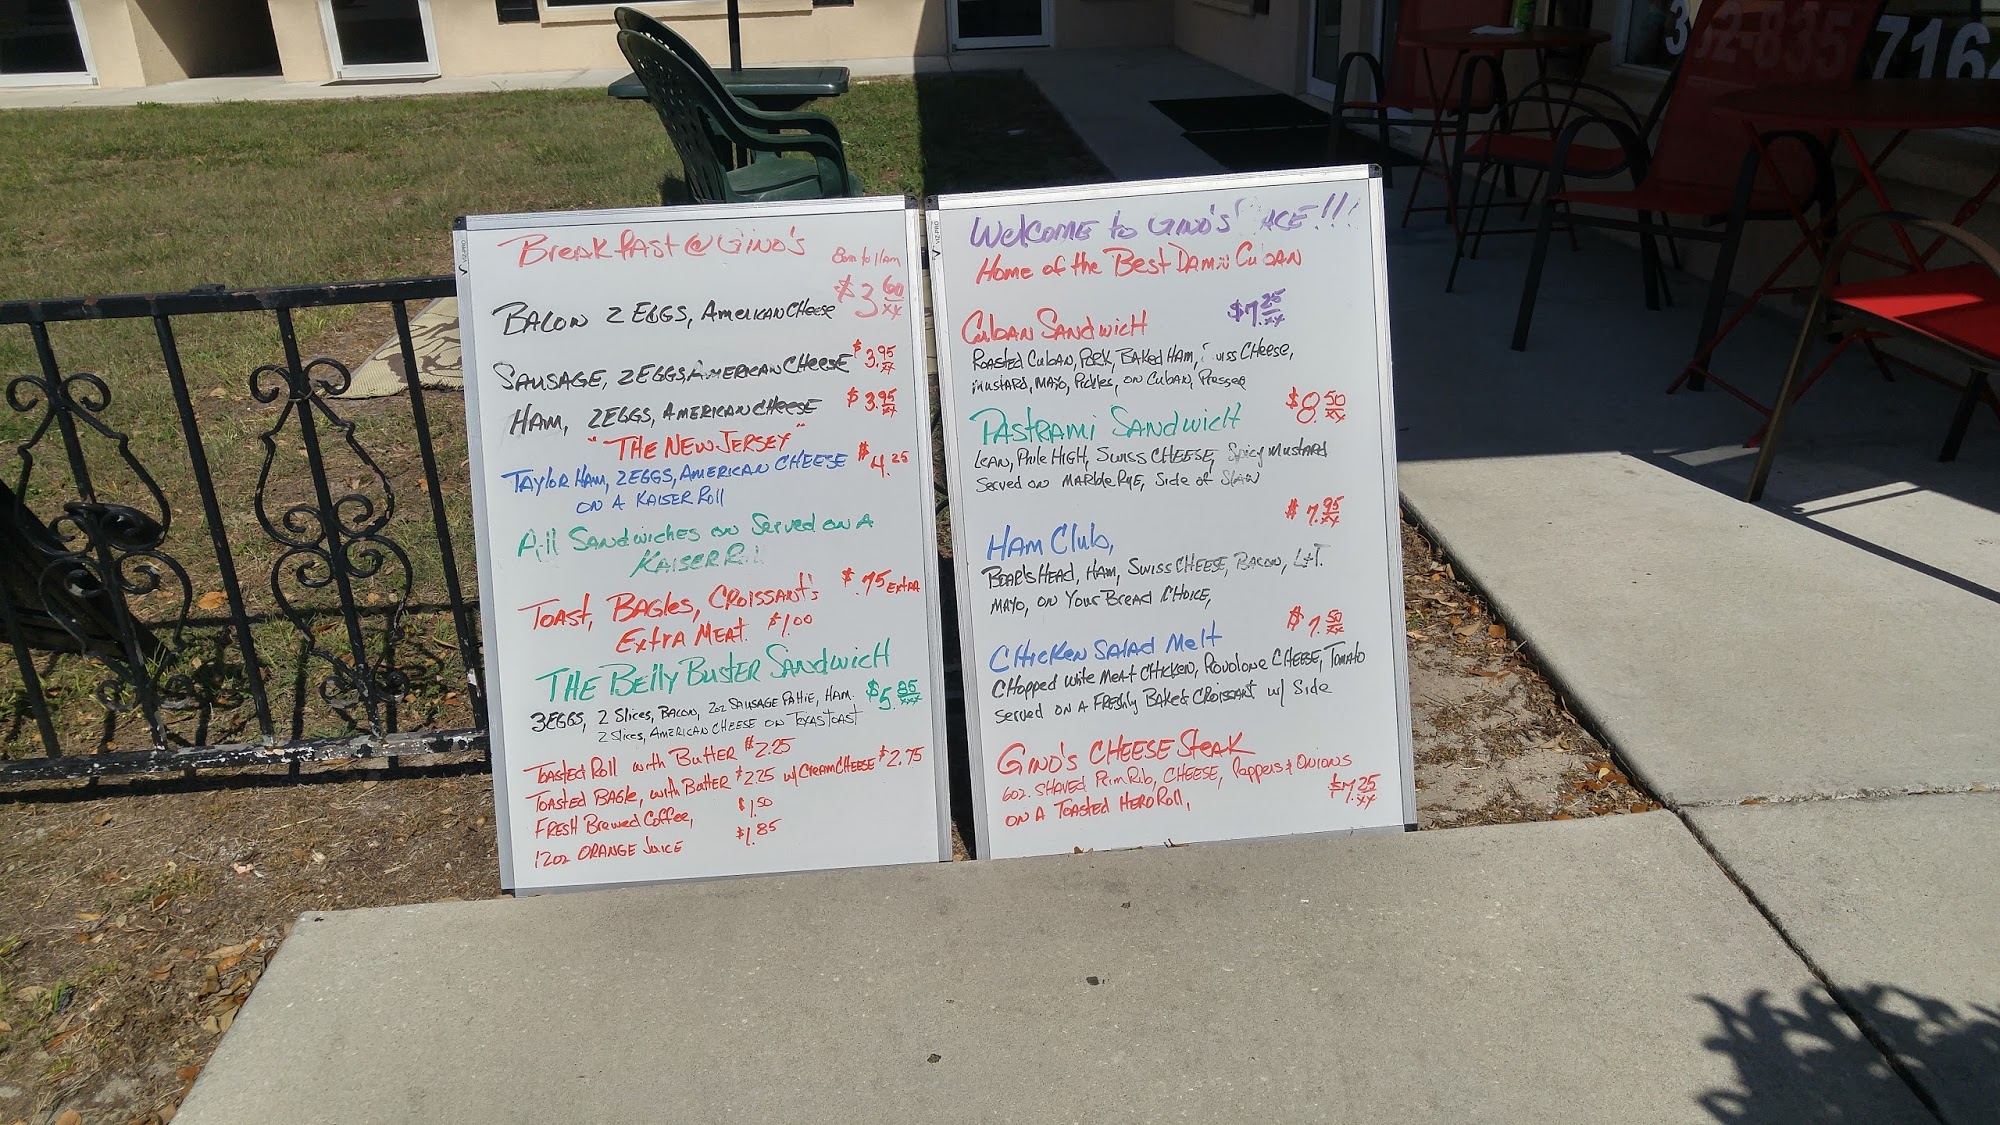 Breakfast @ Gino's 8am to 11am
Bacon 2 Eggs, American Cheese $3.60
Sausage, 2 Eggs, American Cheese $3.95
Ham, 2 Eggs, American Cheese $3.95
"The New Jersey"
Taylor Ham, 2 Eggs, American Cheese $4.25
on a Kaiser Roll
All Sandwiches on Served on a
Kaiser
Toast, Bagles, Croissant's $.75 Extra
Extra Meat $1.00
The Belly Buster Sandwich
3 Eggs, 2 Slices, Bacon, 2oz Sausage Pattie, Ham. $5.85
2 Slices, American Cheese on Texas Toast
Toasted Roll with Butter $2.25
Toasted Bagle, with Butter $2.25 w/ Cream Cheese $2.75
Fresh Brewed Coffee, $1.50
12oz Orange Juice $1.85
Welcome to Gino's !!!
Home of the Best Damn Cuban
Cuban Sandwich $7.25
Roasted Cuban, Pork, Baked Ham, Cheese,
Mustard, Mayo, Pickles, on Cuban,
Pastrami Sandwich $8.50
Lean, Phile High, Swiss Cheese, Spicy Mustard
Served on Marble Rye, Side of Slaw
Ham Club, $7.95
Boar's Head, Ham, Swiss Cheese, Bacon, L+T.
Mayo, on Your Bread Choice,
Chicken Salad Melt $7.50
Chopped Wite Meat Chicken, Povolone Cheese, Tomato
Served on a Freshly Baked Croissant w/ Side
Gino's Cheese Steak
6oz. Shaved Prim Rib, Cheese, Peppers & Onions
on a Toasted Hero Roll, $7.25